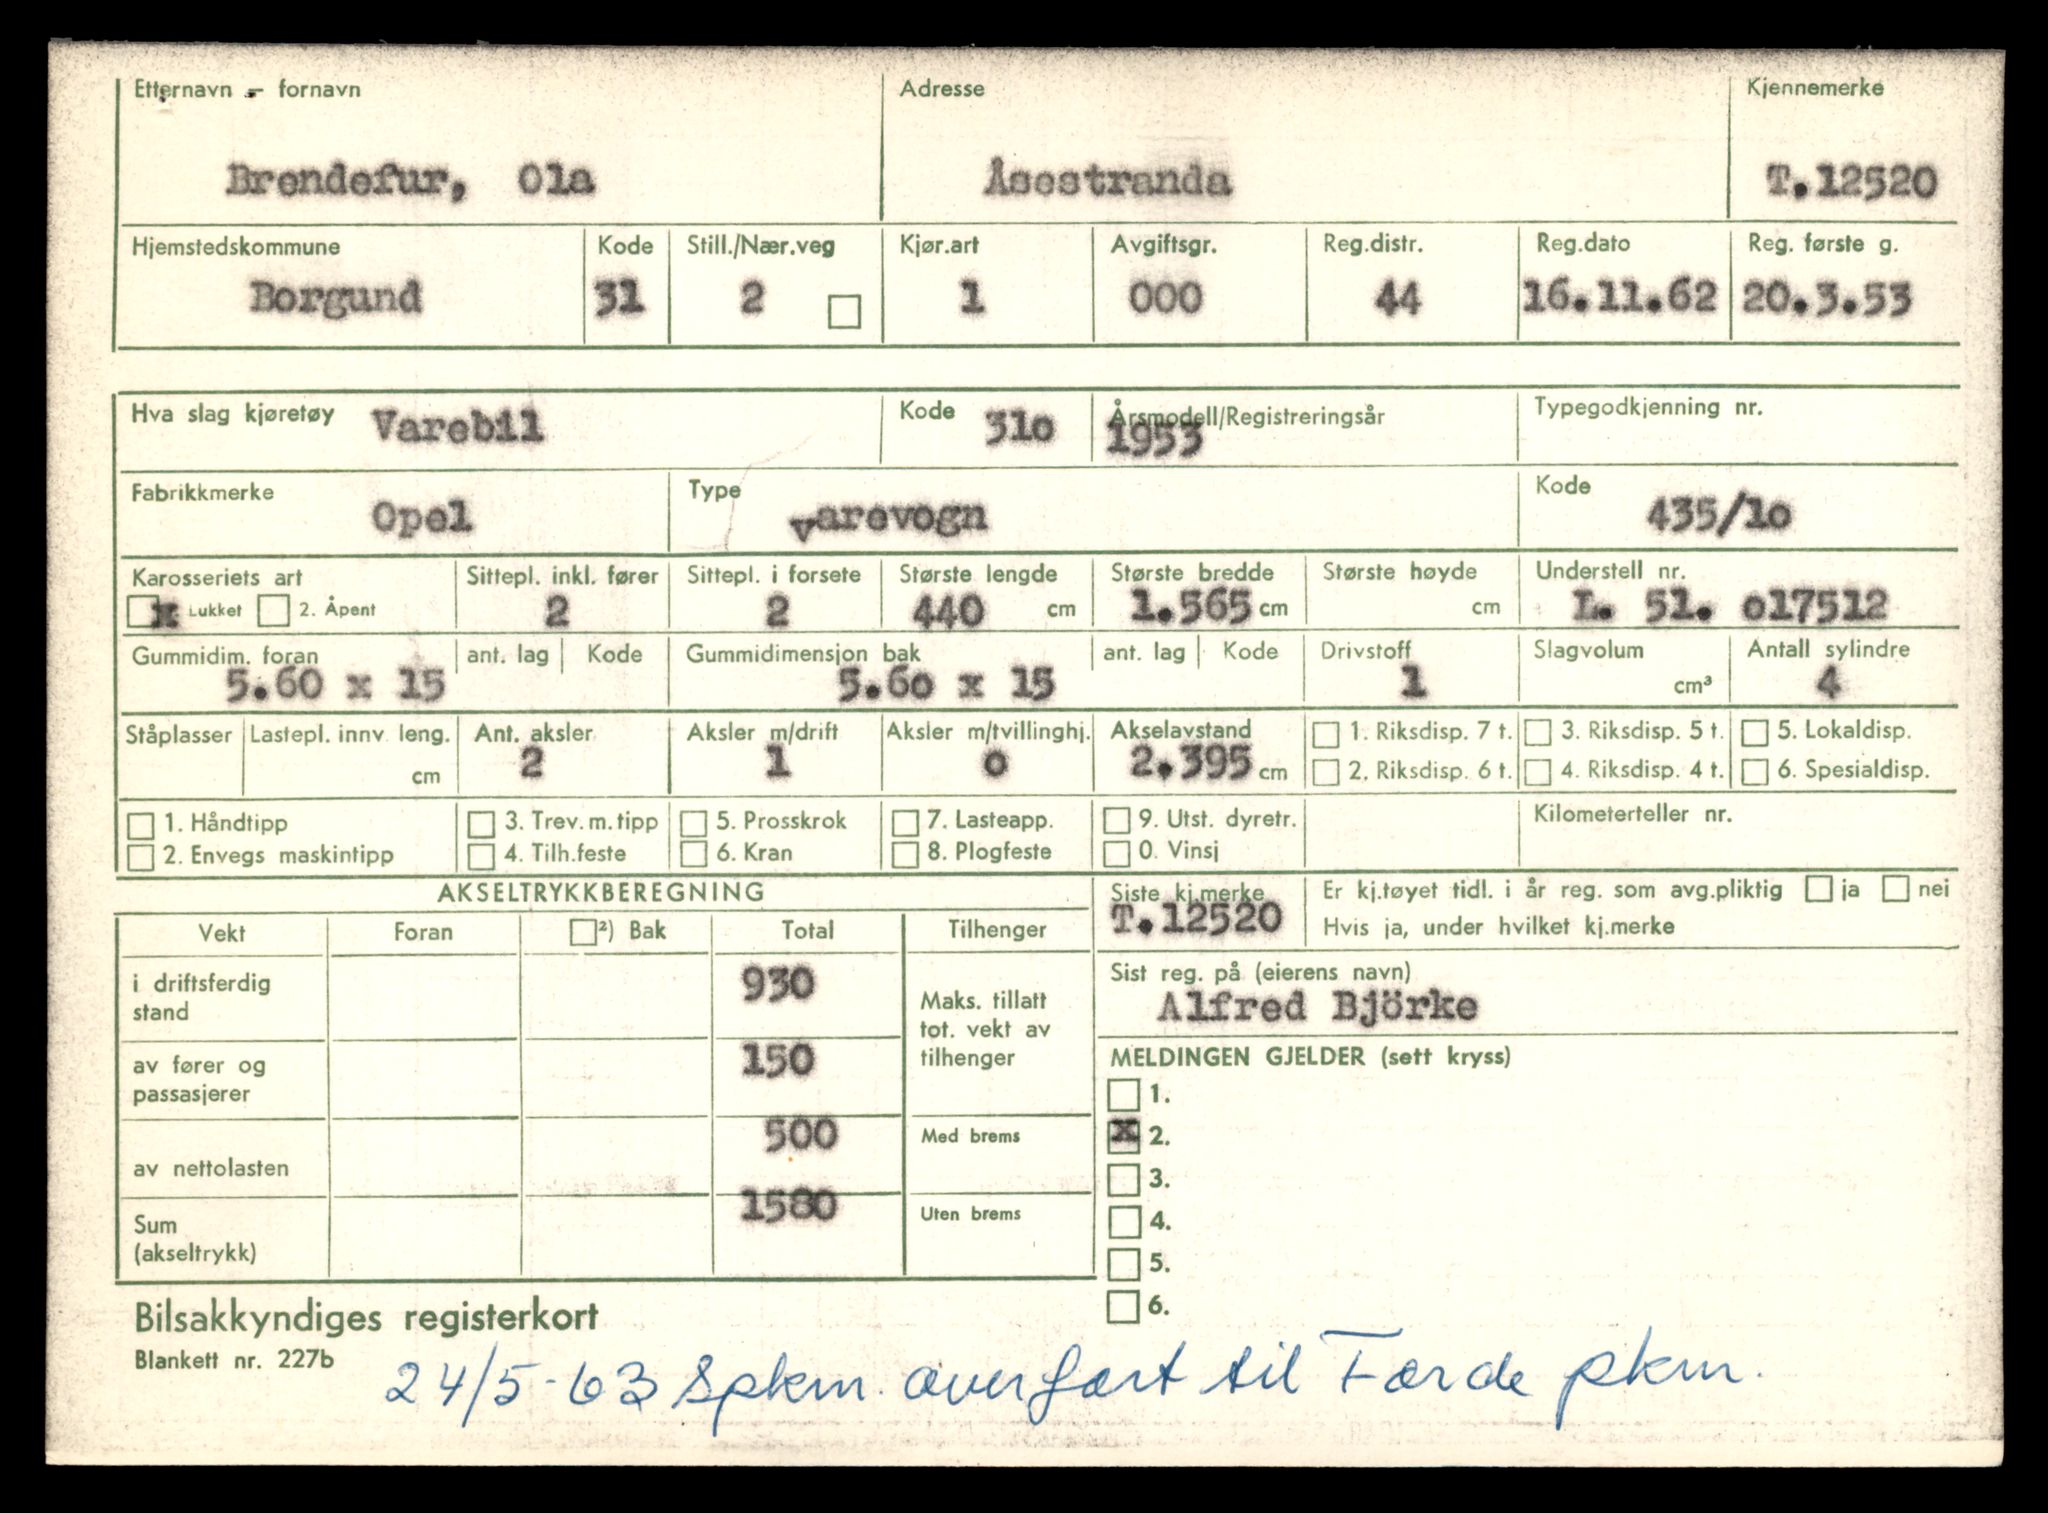 Etternavn - fornavn Adresse Kjennemerke
Brendefur, Ola Åsestranda T.12520
Hjemstedskommune Kode Still./Nær.veg Kjør.art Avgiftsgr. Reg.distr. Reg.dato Reg. første g.
Borgund 31 2 1 000 44 16.11.62 20.3.53
Hva slag kjøretøy Varebil Kode 31o Årsmodell/Registreringsår 1953 Typegodkjenning nr.
Fabrikkmerke Type Kode
Opel varevogn 435/1o
Karosseriets art Sittepl. inkl. fører Sittepl. i forsete Største lengde Største bredde Største høyde Understell nr.
x Lukket 2. Åpent 2 2 440 cm 1.565 cm cm L. 51. o17512
Gummidim. foran ant. lag Kode Gummidimensjon bak ant. lag Kode Drivstoff Slagvolum Antall sylindre
5.60 x 15 5.6o x 15 1 cm³ 4
Ståplasser Lastepl. innv. leng. Ant. aksler Aksler m/drift Aksler m/tvillinghj. Akselavstand 1. Riksdisp. 7 t. 3. Riksdisp. 5 t. 5. Lokaldisp.
cm 2 1 o 2.395 cm 2. Riksdisp. 6 t. 4. Riksdisp. 4 t. 6. Spesialdisp.
1. Håndtipp 3. Trev. m. tipp 5. Prosskrok 7. Lasteapp. 9. Utst. dyretr. Kilometerteller nr.
2. Envegs maskintipp 4. Tilh.feste 6. Kran 8. Plogfeste 0. Vinsj
AKSELTRYKKBEREGNING Siste kj.merke Er kj.tøyet tidl. i år reg. som avg.pliktig ja nei
T.12520 Hvis ja, under hvilket kj.merke
Vekt Foran ²) Bak Total Tilhenger
Sist reg. på (eierens navn)
Alfred Björke
i driftsferdig stand 930
Maks. tillatt
tot. vekt av
tilhenger
av fører og passasjerer 150
av nettolasten 500 Med brems
Sum (akseltrykk) 1580 Uten brems
MELDINGEN GJELDER (sett kryss)
1.
x 2.
3.
4.
5.
6.
Bilsakkyndiges registerkort
Blankett nr. 227b
24/5-63 Spkm. overført til Førde pkm.